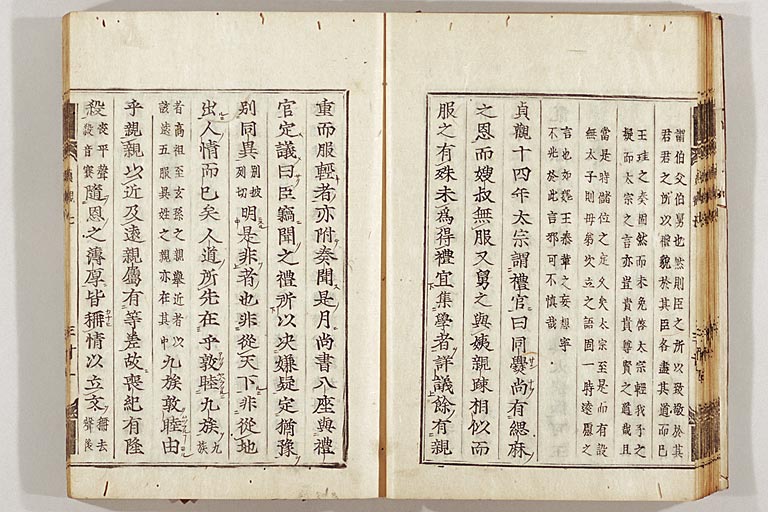 謂伯父伯舅也然則臣之所以致敬於其
君君之所以禮貌於其臣各盡其道而已
王珪之奏固然而未免啓太宗輕我子之
疑而太宗之言亦豈貴貴尊賢之道哉且
當是時儲位之定久矣太宗至是而有設
無太子則母弟次立之語固一時遂忿之
言也如魏王泰輩之妄想寧
不光於此言邪可不慎哉
貞觀十四年太宗謂禮官曰同爨尚有緦麻
之恩而嫂叔無服又舅之與姨親疎相似而
服之有殊未爲得禮宜集學者詳議餘有親
重而服輕者亦附奏聞是月尚書八座與禮
官定議曰臣竊聞之禮所以决嫌疑定猶豫
別同異別彼列切明是非者也非從天下非從地
出人情而已矣人道所先在乎敦睦九族九族
者高祖至玄孫之親舉近者以該遠五服異姓之親亦在其中九族敦睦由
乎親親以近及遠親屬有等差故喪紀有隆
殺喪平聲殺音裟隨恩之薄厚皆稱情以立文稱去聲後